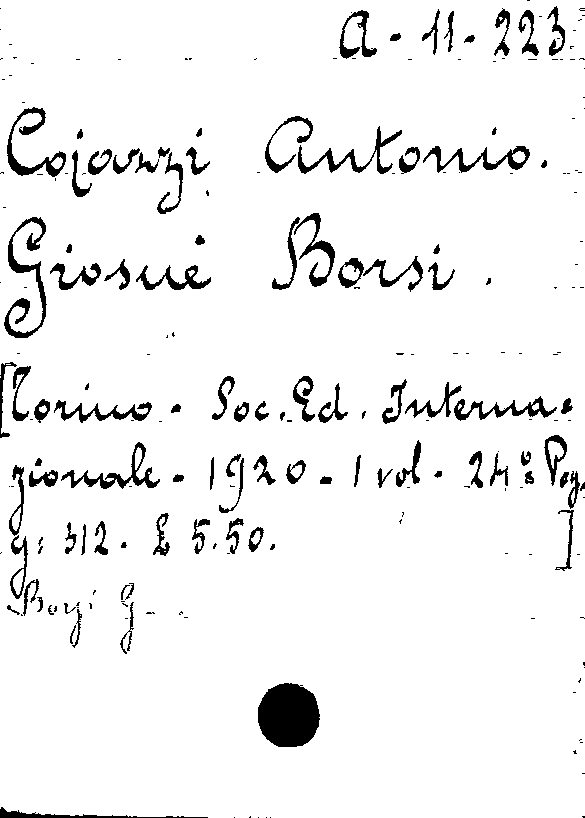 A - 11 - 223.
Cojazzi Antonio.
Giosuè Borsi.
[Torino - Soc. Ed. Interna=
zionale - 1920 - 1 vol - 24º Pag.
g: 312. £ 5.50. ]
Borsi G.